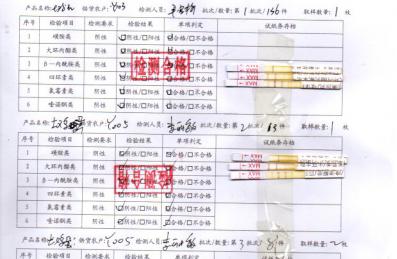 产品名称: 供货农户: 检测人员: 批次/数量: 第1/156件 取样数量:1枚
序号 检验项目 检测要求 检验结果 单项判定 试纸条存档
1 磺胺类 阴性 ☑阴性/☐阳性 ☑合格/☐不合格
2 大环内酯类 阴性 ☑阴性/☐阳性 ☑合格/☐不合格
3 β-内酰胺类 阴性 ☑阴性/☐阳性 ☑合格/☐不合格
4 四环素类 阴性 ☑阴性/☐阳性 ☑合格/☐不合格
5 氯霉素类 阴性 ☑阴性/☐阳性 ☑合格/☐不合格
6 喹诺酮类 阴性 ☑阴性/☐阳性 ☑合格/☐不合格
检测合格
MAX
MAX
产品名称: 供货农户:Y005 检测人员: 批次/数量: 第2/83件 取样数量:1枚
序号 检验项目 检测要求 检验结果 单项判定 试纸条存档
1 磺胺类 阴性 ☑阴性/☐阳性 ☑合格/☐不合格
2 大环内酯类 阴性 ☑阴性/☐阳性 ☑合格/☐不合格
3 β-内酰胺类 阴性 ☑阴性/☐阳性 ☑合格/☐不合格
4 四环素类 阴性 ☑阴性/☐阳性 ☑合格/☐不合格
5 氯霉素类 阴性 ☑阴性/☐阳性 ☑合格/☐不合格
6 喹诺酮类 阴性 ☑阴性/☐阳性 ☑合格/☐不合格
检测合格
MAX
MAX
产品名称: 供货农户:Y005 检测人员: 批次/数量: 第3/ 件 取样数量: 枚
序号 检验项目 检测要求 检验结果 单项判定 试纸条存档
1 磺胺类 阴性 ☑阴性/☐阳性 ☑合格/☐不合格